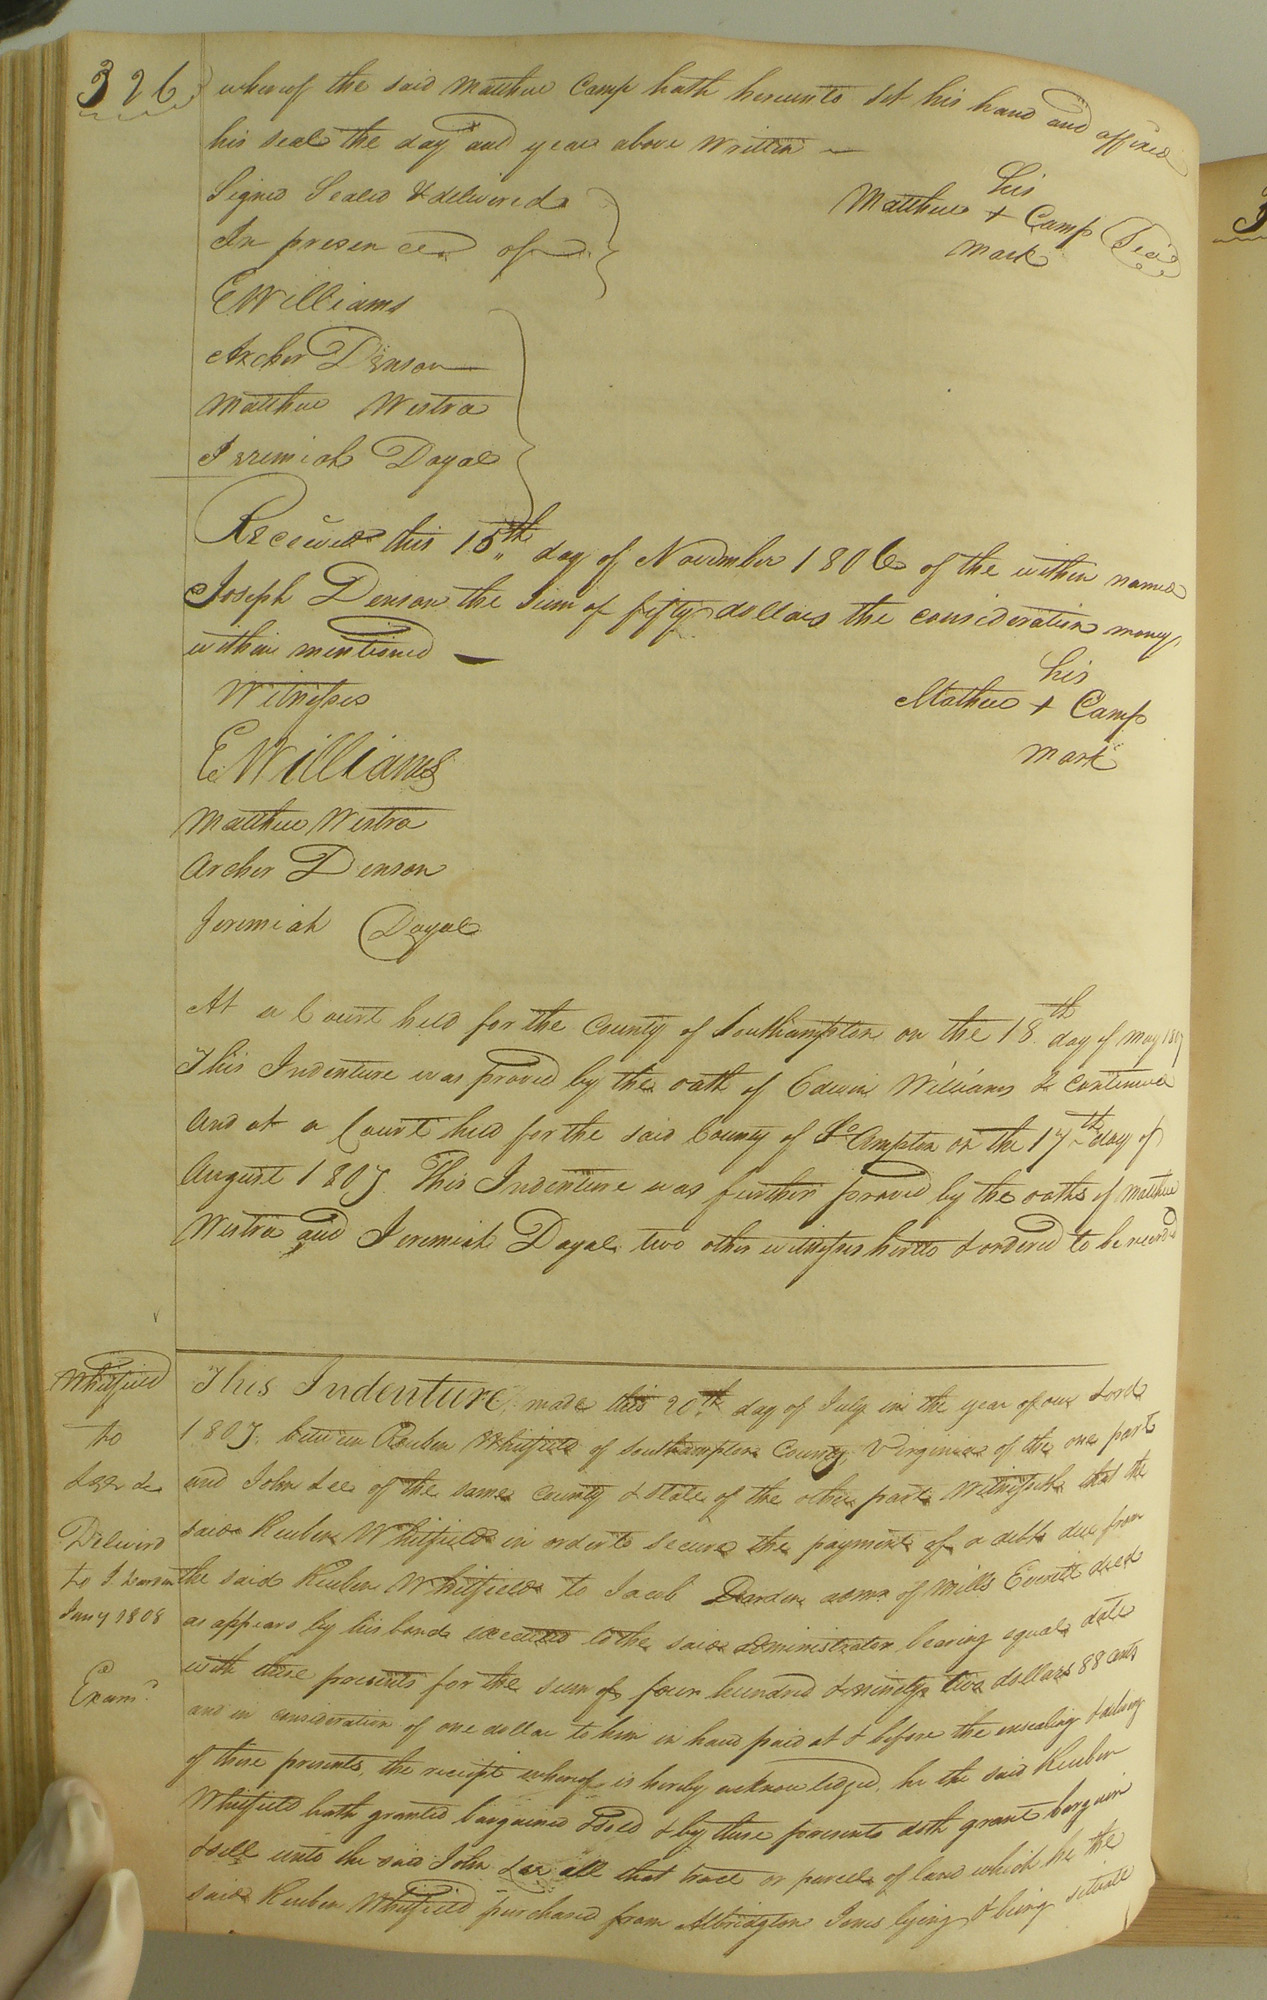 326
whereof the said Matthew Camp hath hereunto set his hand and affixed
his seal the day and year above written
Signed Sealed & delivered
In presence of
his
Matthew + Camp Seal
mark
EWilliams
Archer Denson
Matthew Westra
Jeremiah Doyal
Received this 15th day of November 1806 of the within named
Joseph Denson the sum of fifty dollars the consideration money
within mentioned
his
Witnesses
Mathew + Camp
mark
EWilliams
Matthew Westra
Archer Denson
Jeremiah Doyal
At a Court held for the County of Southampton on the 18th day of May 1807
This Indenture was proved by the oath of Edwin Williams & continued
And at a Court held for the said County of So Ampton on the 17th day of
August 1807. This Indenture was further proved by the oaths of Matthew
Westra and Jeremiah Doyal two other witnesses hereto & ordered to be recorded
Whitfield
to
Lee
Deliverd
to J. Darden
Jany 1808
Exam.d
This Indenture, made this 20th day of July in the year of our Lord
1807. between Reuben Whitfield of Southampton County, Virginia of the one part
and John Lee of the same County & state of the other part Witnesseth that the
said Reuben Whitfield in order to secure the payment of a debt due from
the said Reuben Whitfield to Jacob Darden admr. of Mills Everitt deced
as appears by his bond executed to the said administrator bearing equal date
with these presents for the sum of four hundred & ninety two dollars 88 cents
and in consideration of one dollar to him in hand paid at & before the ensealing & delivery
of these presents, the receipt whereof is hereby acknowledged, he the said Reuben
Whitfield hath granted bargained & sold & by these presents doth grant bargain
& sell unto the said John Lee all that tract or parcel of land which he the
said Reuben Whitfield purchased from Albridgton Jones lying & being situate